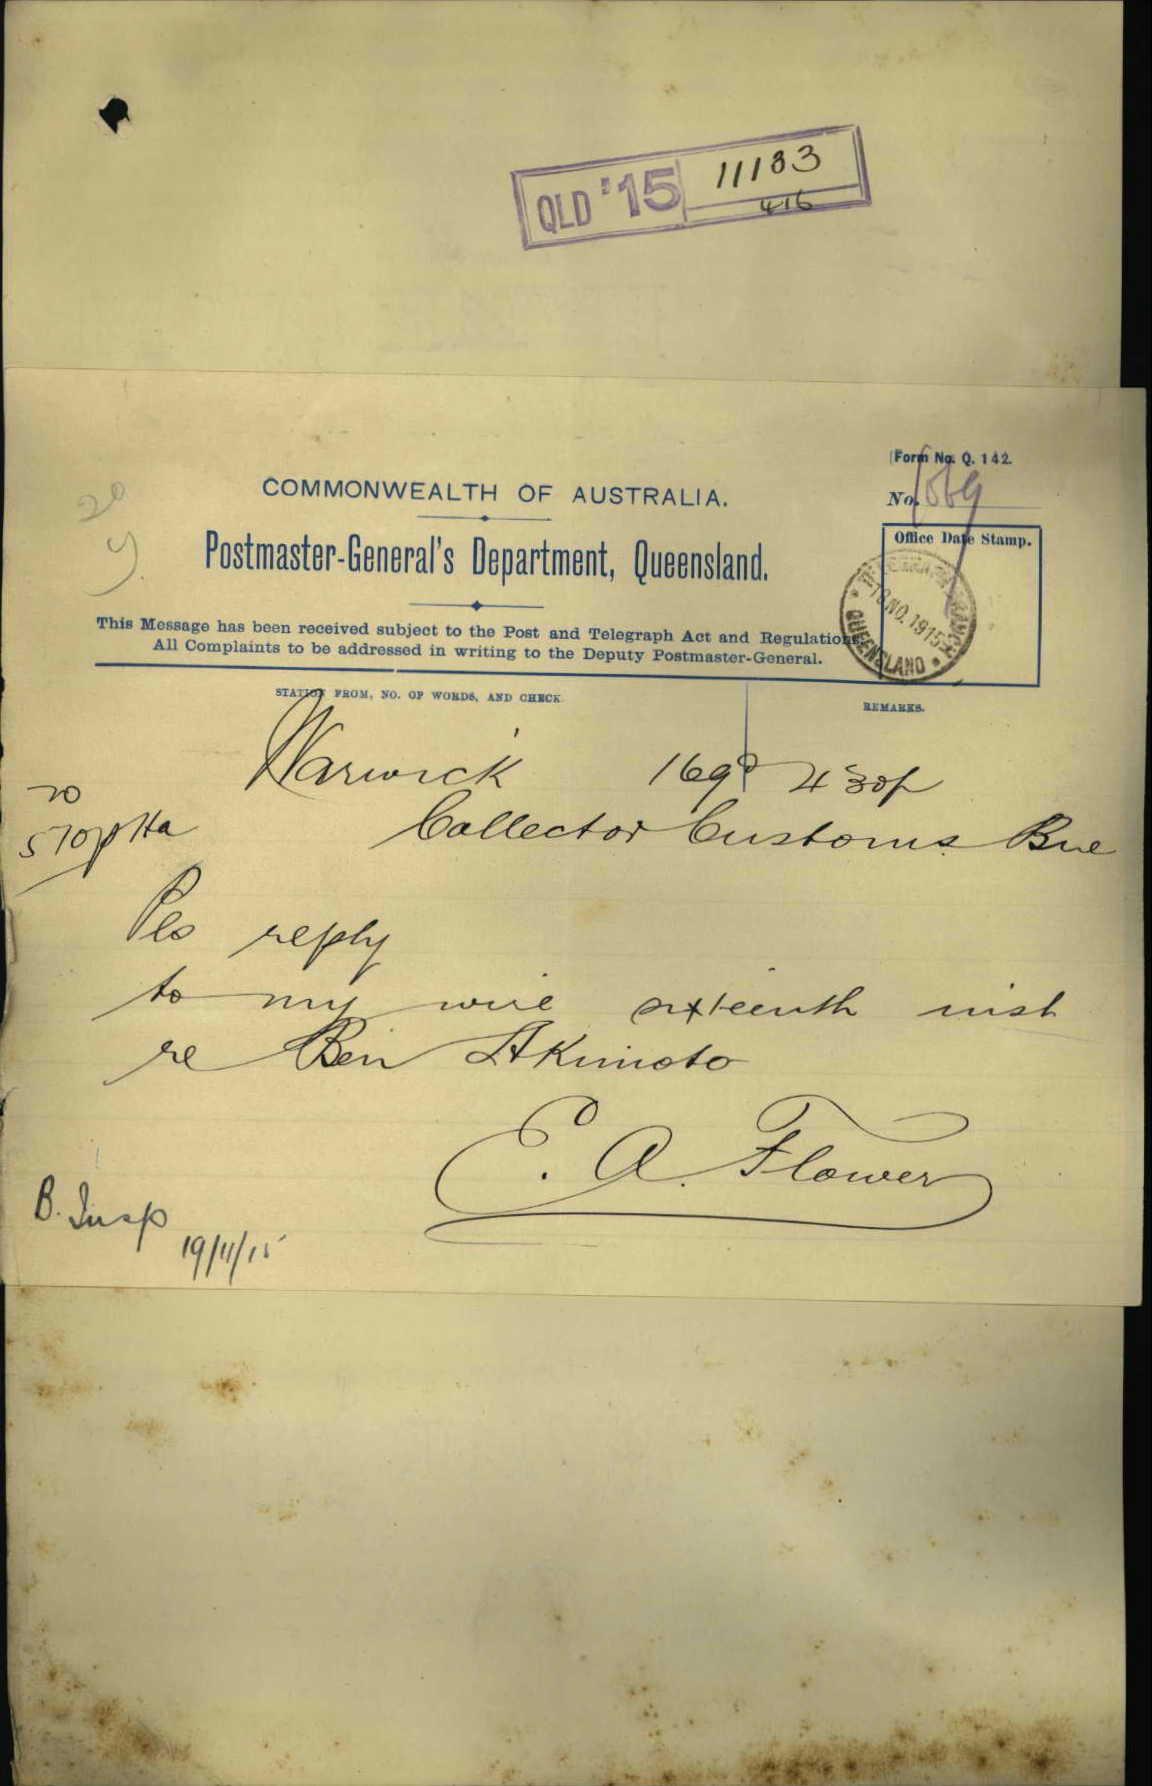 QLD '15 11183
416
Form No. Q. 142.
COMMONWEALTH OF AUSTRALIA.
No.
Postmaster-General's Department, Queensland.
Office Date Stamp.
18 NO. 1915
QUEENSLAND
This Message has been received subject to the Post and Telegraph Act and Regulations.
All Complaints to be addressed in writing to the Deputy Postmaster-General.
STATION FROM, NO. OF WORDS, AND CHECK.
REMARKS.
Warwick 169 4 30p
510p Ha
Collector Customs Bne
Pls reply
to my wire sixteenth inst
re Ben Akimoto
E. A. Flower
B. Insp
19/11/15